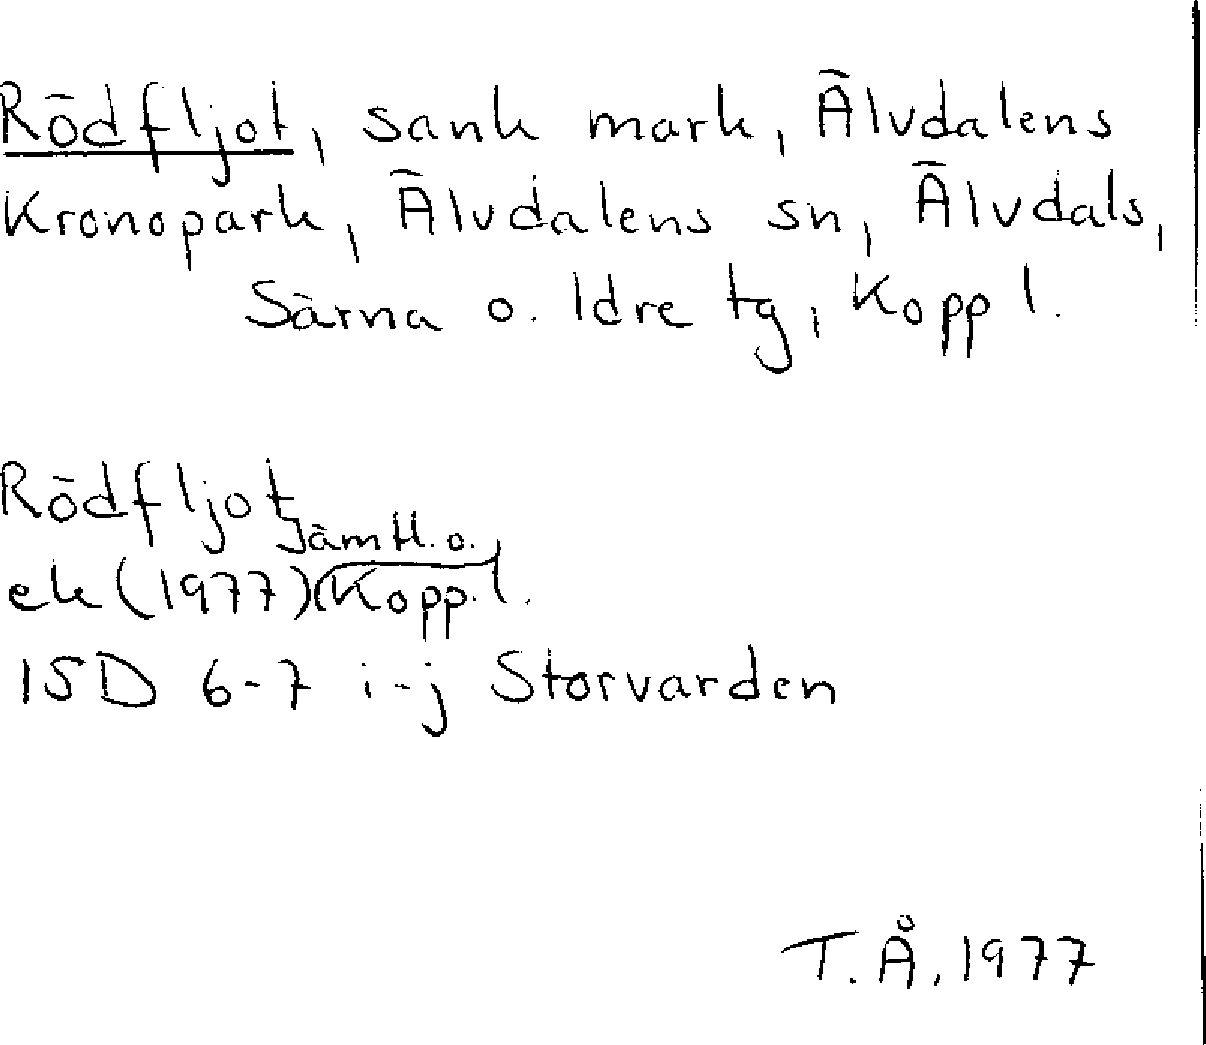 Rödfljot, sank mark, Älvdalens
Kronopark, Älvdalens sn, Älvdals,
Särna o. Idre tg, Kopp l.
Rödfljot
Jämtl. o.
ek (1977) Kopp. l.
15D 6-7 i-j Storvarden
T.Å, 1977